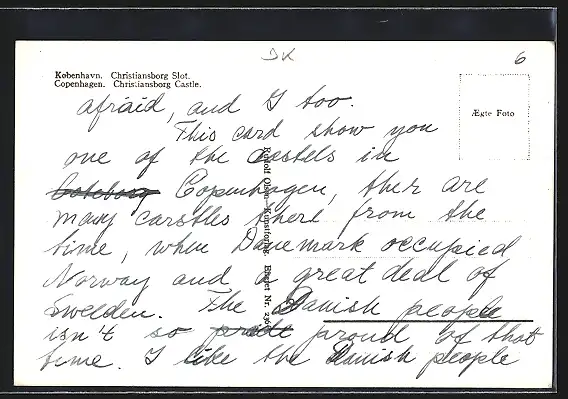 DK
6
København. Christiansborg Slot.
Copenhagen. Christiansborg Castle.
Ægte Foto
afraid, and I too.
This card show you
one of the castels in
Goteborg Copenhagen, ther are
many carstles therl from the
time, when Danemark occupied
Norway and a great deal of
Swelden. The Danish people
isn't so pride proud of that
time. I like the Danish people
Rudolf Olsens Kunstforlag Eneret Nr.